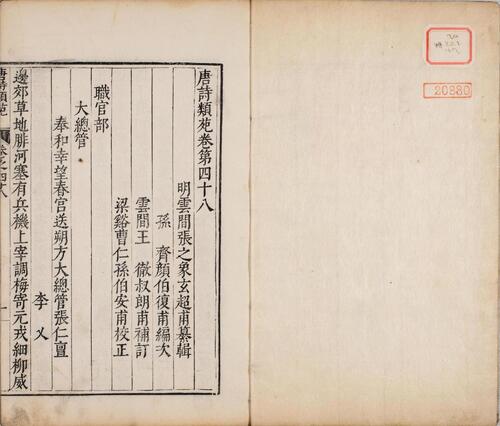 唐詩類苑卷第四十八
明雲間張之象玄超甫纂輯
孫齊顏伯復甫編次
雲間王徹叔朗甫補訂
梁谿曹仁孫伯安甫校正
職官部
大總管
奉和幸望春宮送朔方大總管張仁亶
李乂
邊郊草地腓河塞有兵機上宰調梅寄元戎細柳威
唐詩類苑
卷之四十八
一
20880